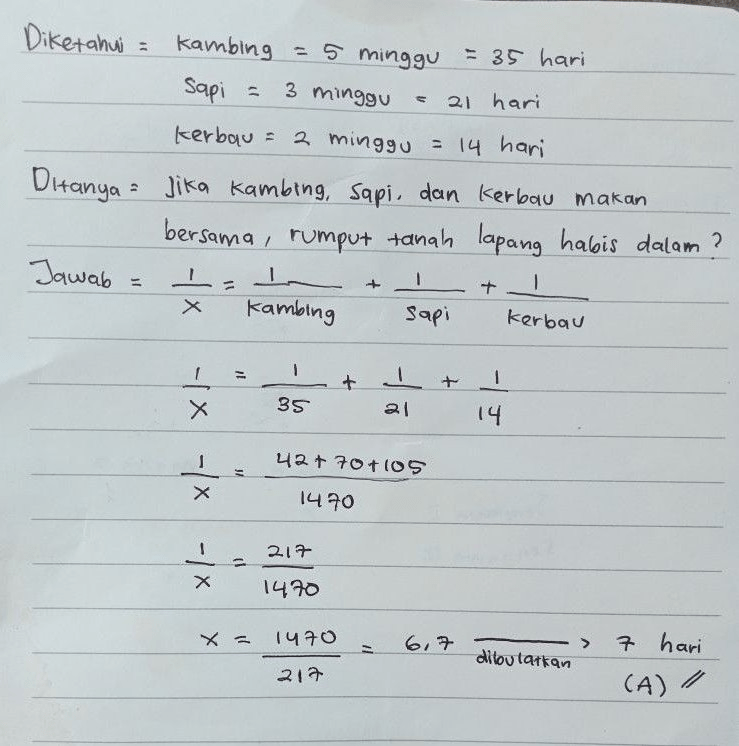 Diketahui = kambing = 5 minggu = 35 hari
Sapi = 3 minggu = 21 hari
kerbau = 2 minggu = 14 hari
Ditanya = Jika kambing, sapi, dan kerbau makan
bersama, rumput tanah lapang habis dalam?
Jawab = 1/x = 1/kambing + 1/sapi + 1/kerbau
1/x = 1/35 + 1/21 + 1/14
1/x = 42+70+105/1470
1/x = 217/1470
x = 1470/217 = 6,7 dibulatkan → 7 hari
(A) //